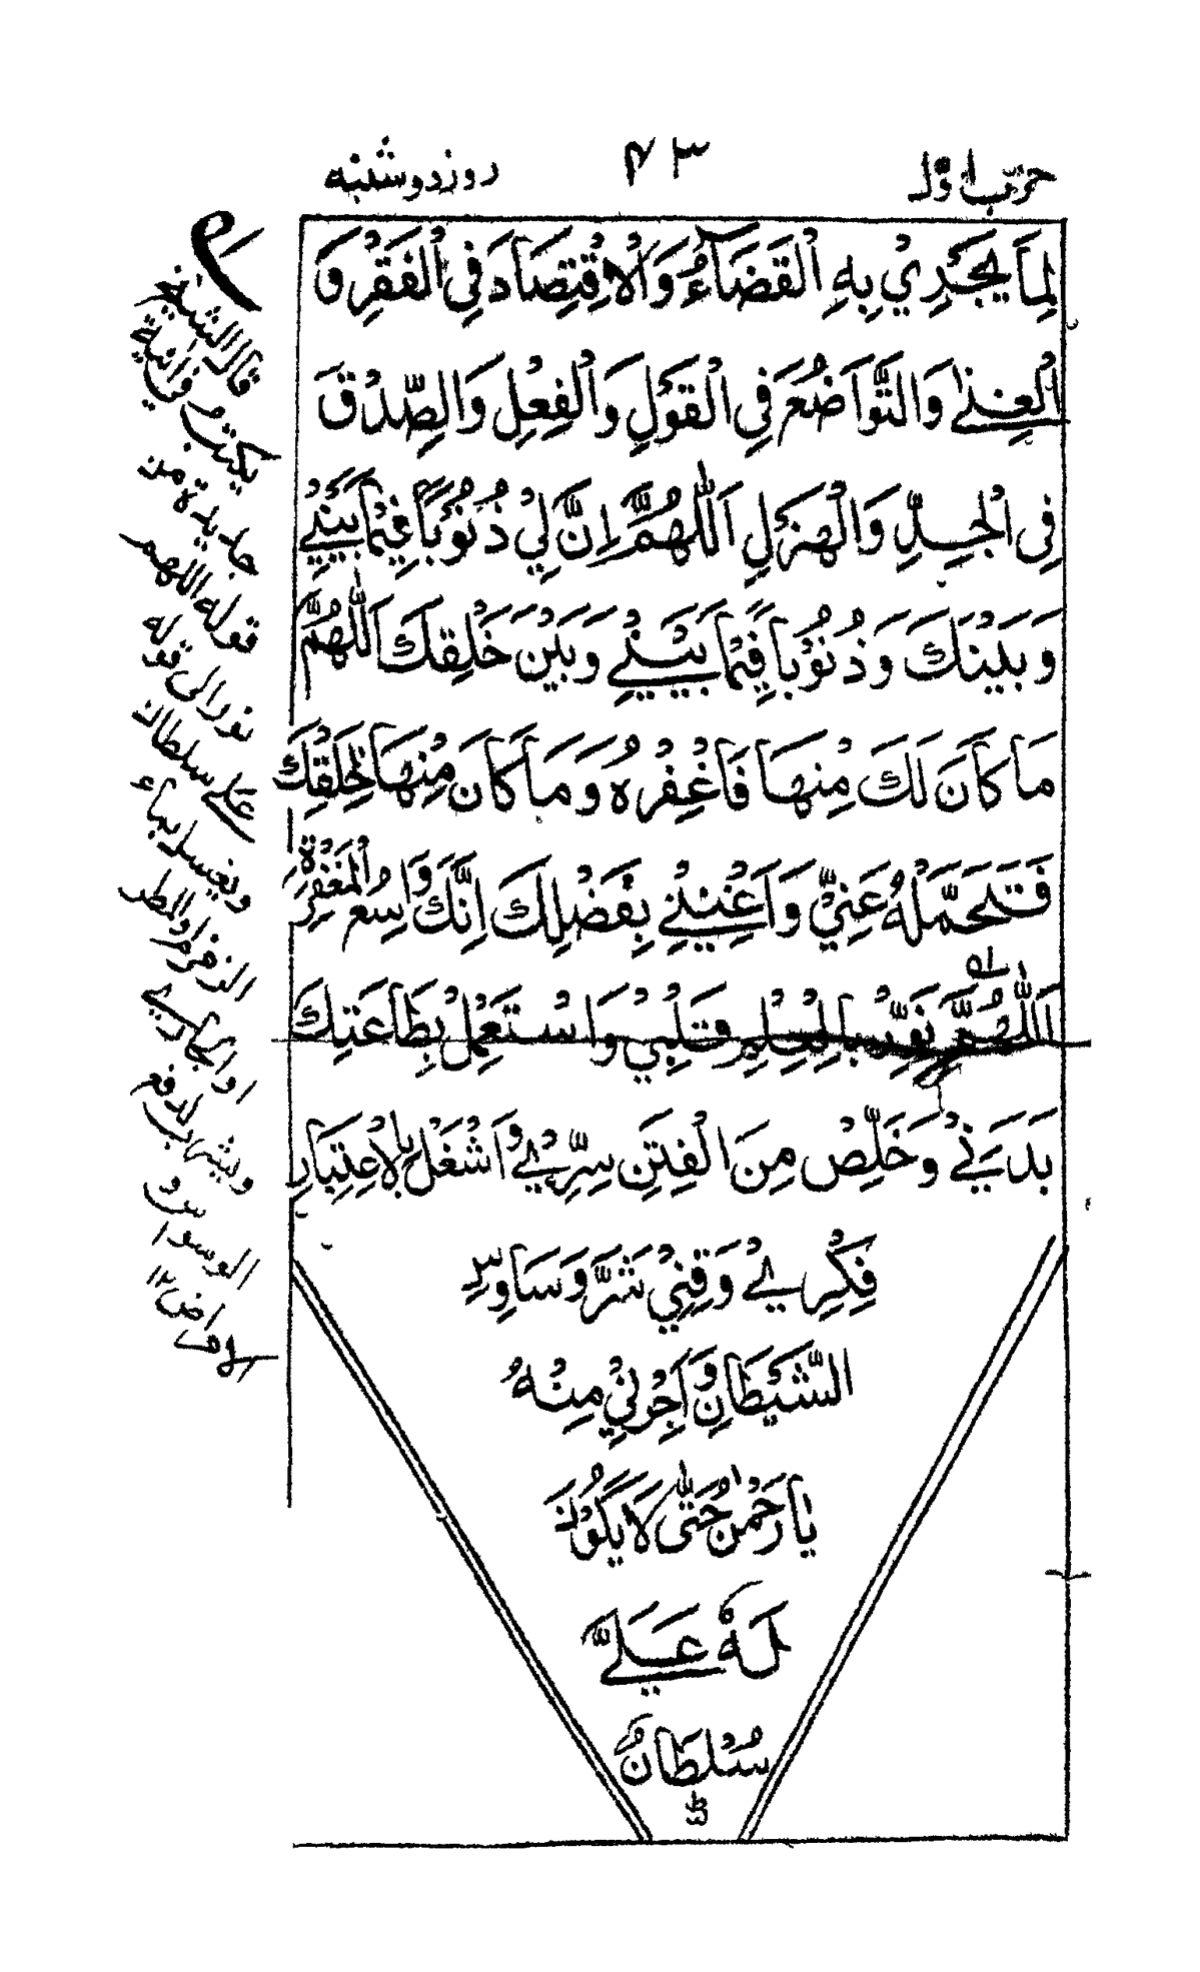 حزب اول
۴۳
روز دوشنبه
لِمَا يَجْرِيْ بِهِ الْقَضَآءُ وَالْاِقْتِصَادَ فِي الْفَقْرِ وَ
الْغِنٰى وَالتَّوَاضُعَ فِي الْقَوْلِ وَالْفِعْلِ وَالصِّدْقَ
فِي الْجِدِّ وَالْهَزْلِ اَللّٰهُمَّ اِنَّ لِيْ ذُنُوْبًا فِيْمَا بَيْنِيْ
وَبَيْنَكَ وَذُنُوْبًا فِيْمَا بَيْنِيْ وَبَيْنَ خَلْقِكَ اَللّٰهُمَّ
مَا كَانَ لَكَ مِنْهَا فَاغْفِرْهُ وَمَا كَانَ مِنْهَا لِخَلْقِكَ
فَتَحَمَّلْهُ عَنِّيْ وَاَغْنِنِيْ بِفَضْلِكَ اِنَّكَ وَاسِعُ الْمَغْفِرَةِ
اَللّٰهُمَّ نَوِّرْ بِالْعِلْمِ قَلْبِيْ وَاسْتَعْمِلْ بِطَاعَتِكَ
بَدَنِيْ وَخَلِّصْ مِنَ الْفِتَنِ سِرِّيْ وَاشْغَلْ بِالْاِعْتِبَارِ
فِكْرِيْ وَقِنِيْ شَرَّ وَسَاوِسِ
الشَّيْطَانِ وَاَجِرْنِيْ مِنْهُ
يَا رَحْمٰنُ حَتّٰى لَا يَكُوْنَ
لَهٗ عَلَيَّ
سُلْطَانٌ
قال الشيخ
يكتب في انية
جديدة من
قوله اللهم
نور الى قوله
على سلطان
ويغسل بماء
الزمزم او المطر
او الجاري
ويشرب لدفع
الوسواس و
الامراض ١٢